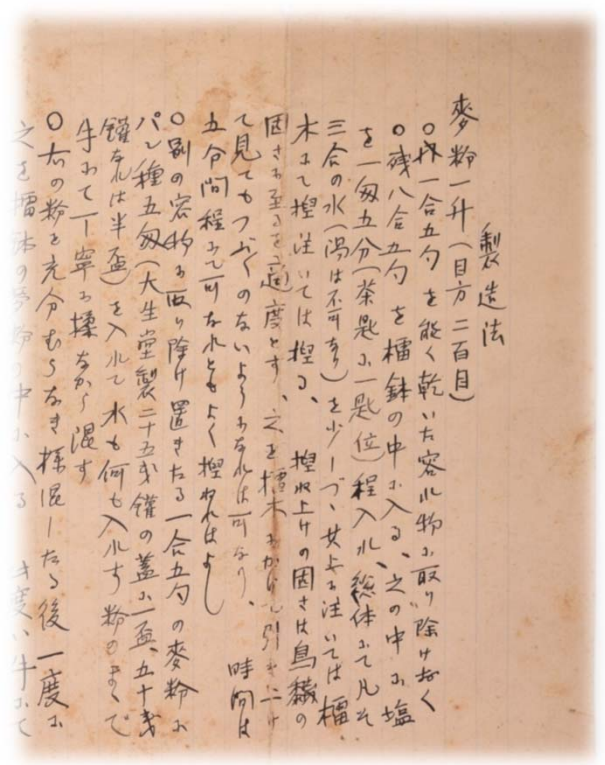 製造法
麥粉一升(目方二百目)
○内一合五勺を能く乾いた容れ物に取り除けおく
○残八合五勺を擂鉢の中に入る、之の中に塩
を一匁五分(茶匙に一匙位)程入れ、総体にて凡そ
三合の水(湯は不可なり)を少しづゝ其上に注いては擂
木にて捏注いては捏る、捏ね上げの固さは鳥黐の
固さに至るを適度とす、之を擂木にかけて引き上げ
て見てもつぶ〱のないようになれば可なり、時間は
五分間程にて可なれともよく捏ねればよし
○別の容物に取り除け置きたる一合五勺の麥粉に
パン種五匁(大生堂製二十五匁罐の蓋に一盃、五十匁
罐なれば半盃)を入れて水も何も入れず粉のまゝで
手にて丁寧に揉ながら混す
○右の粉を充分むらなき様混したる後一度に
之を擂鉢の麥粉の中に入る